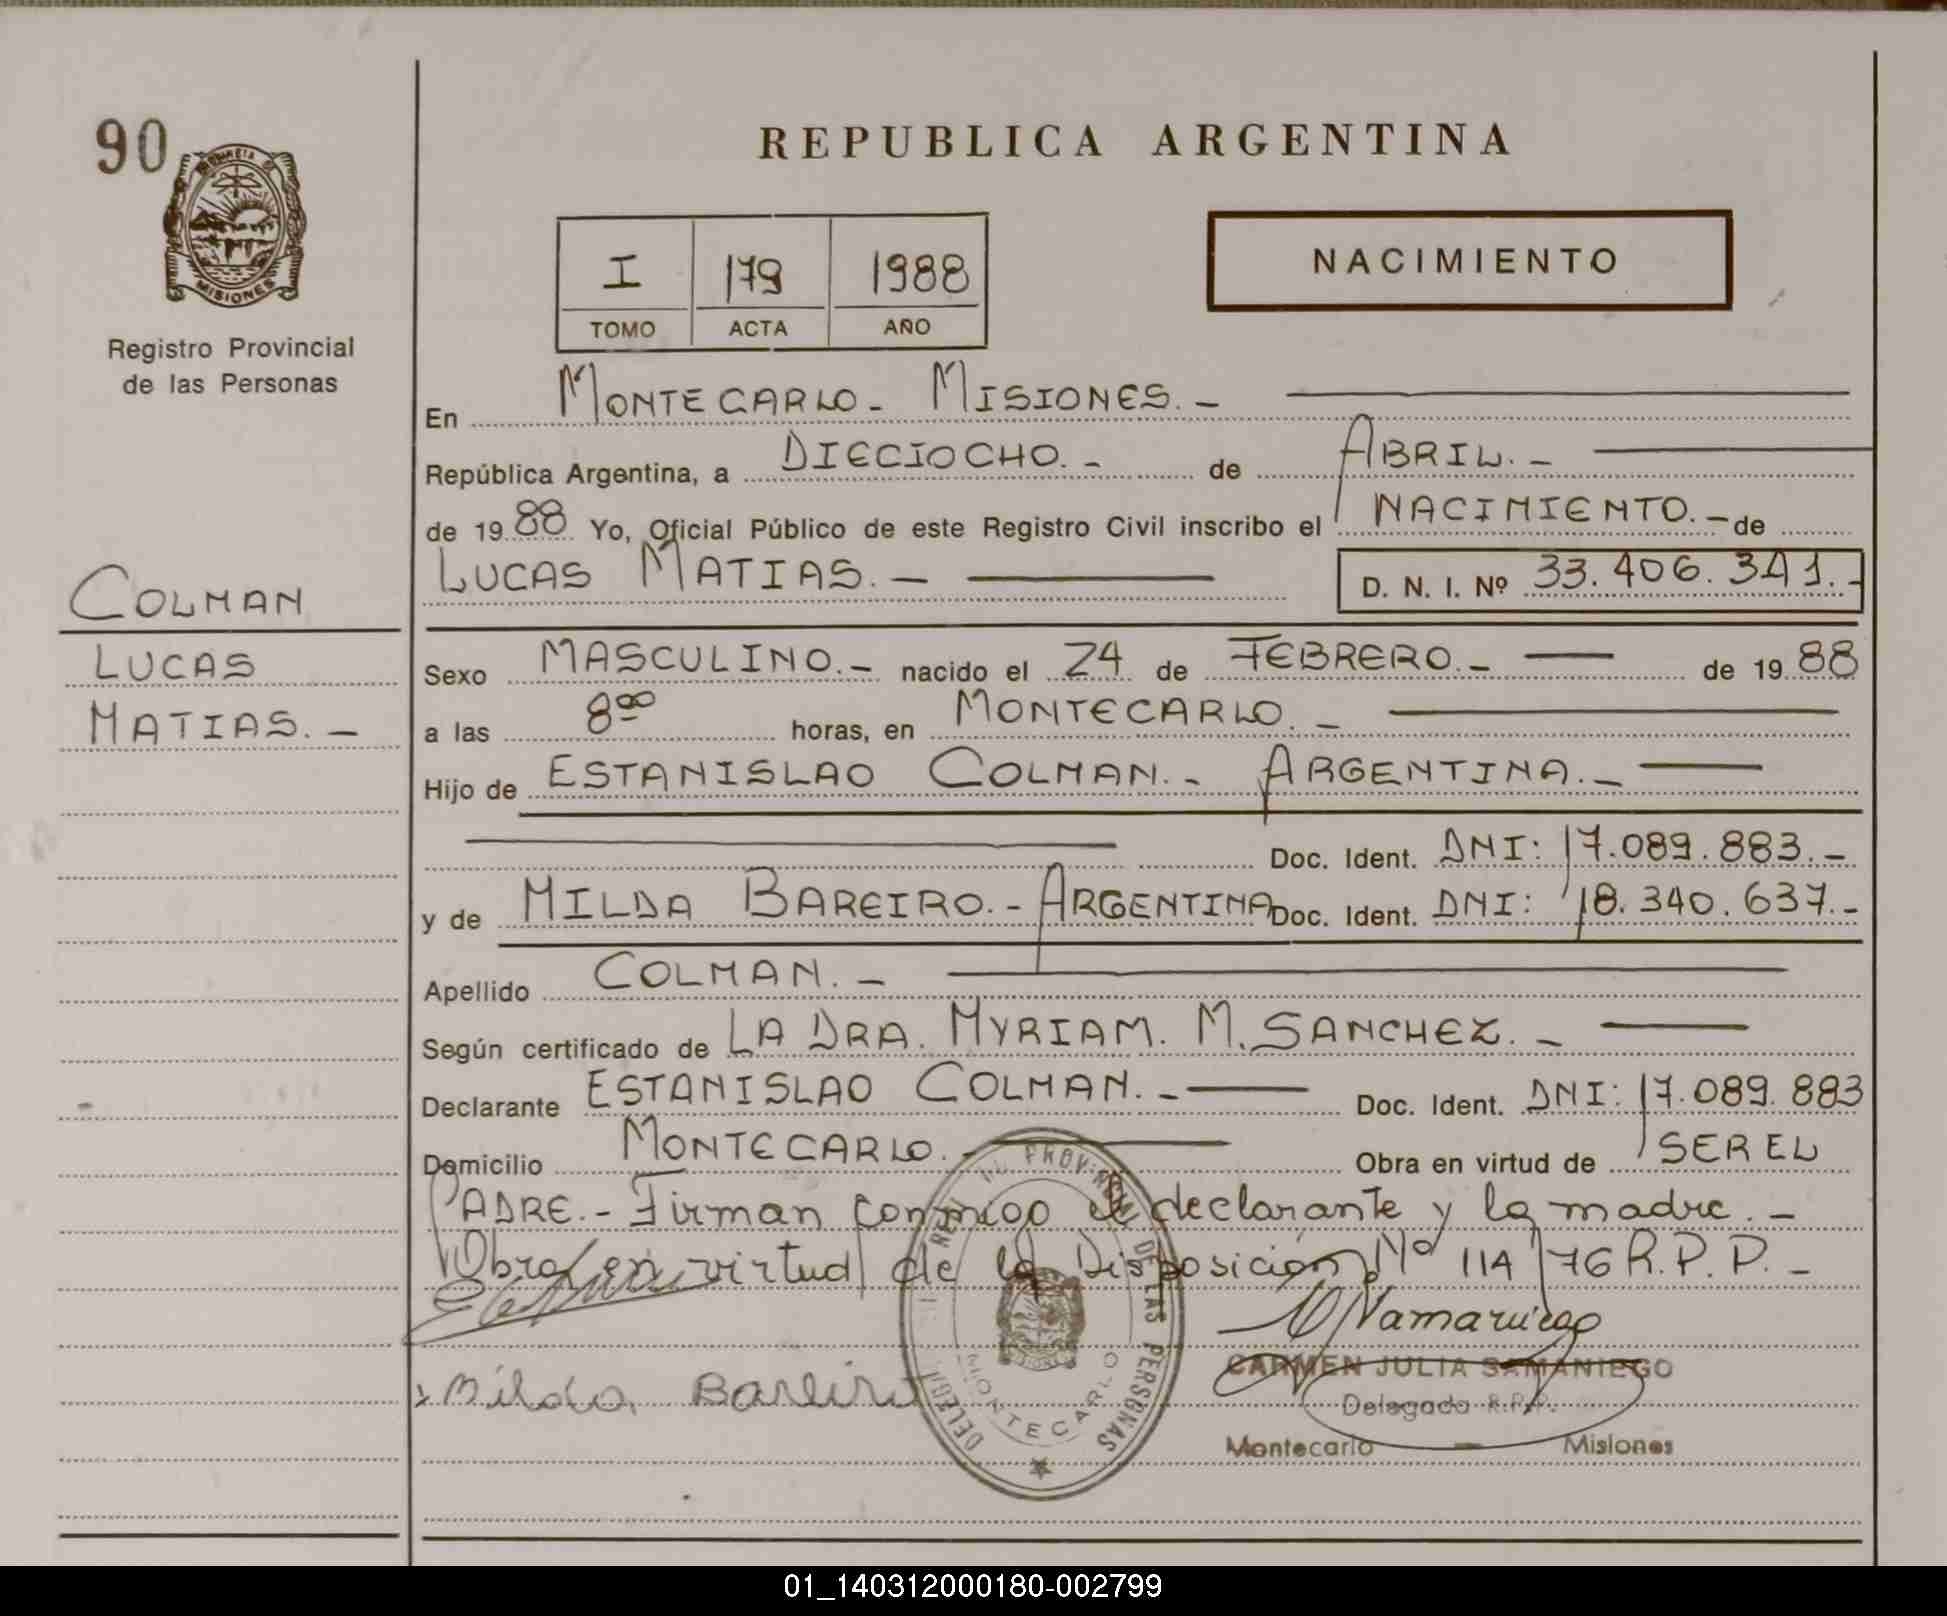 90
PROVINCIA DE
MISIONES
Registro Provincial
de las Personas
COLMAN
LUCAS
MATIAS. —
REPUBLICA ARGENTINA
I 179 1988
TOMO ACTA AÑO
NACIMIENTO
En MONTECARLO - MISIONES. —
República Argentina, a DIECIOCHO. - de ABRIL. —
de 1988 Yo, Oficial Público de este Registro Civil inscribo el NACIMIENTO. — de
LUCAS MATIAS. — D. N. I. Nº 33.406.341. -
Sexo MASCULINO. — nacido el 24 de FEBRERO. — de 1988
a las 8 00 horas, en MONTECARLO. —
Hijo de ESTANISLAO COLMAN. - ARGENTINA. —
Doc. Ident. DNI: 17.089.883. —
y de MILDA BAREIRO. - ARGENTINA Doc. Ident. DNI: 18.340.637. -
Apellido COLMAN. —
Según certificado de LA DRA. MYRIAM. M. SANCHEZ. —
Declarante ESTANISLAO COLMAN. — Doc. Ident. DNI: 17.089.883
Domicilio MONTECARLO. - Obra en virtud de SER EL
PADRE. - Firman conmigo el declarante y la madre. —
Obra en virtud de la Disposición Nº 114/76 R.P.P. —
Milda Bareiro
DE LAS PERSONAS
MONTECARLO
CARMEN JULIA SAMANIEGO
Delegada R.P.P.
Montecarlo — Misiones
01_140312000180-002799